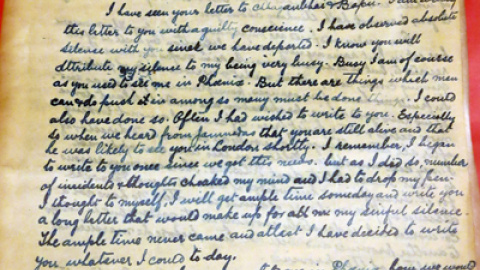 I have seen your letter to Chhaganbhai & Bapu. I am writing
this letter to you with a guilty conscience. I have observed absolute
silence with you since we have departed. I know you will
attribute my silence to my being very busy. Busy I am of course
as you used to see me in Phoenix. But there are things which men
can & do push it in among so many must be done things. I could
also have done so. Often I had wished to write to you. Especially
so when we heard from that you are still alive and that
he was likely to see you in London shortly. I remember, I began
to write to you once since we got this news. but as I did so, number
of incidents & thoughts choaked my mind and I had to drop my pen.
I thought to myself, I will get ample time someday and write you
a long letter that would make up for all me my sinful silence.
The ample time never came and atlest I have decided to write
you whatever I could to day.
Phoenix how we would